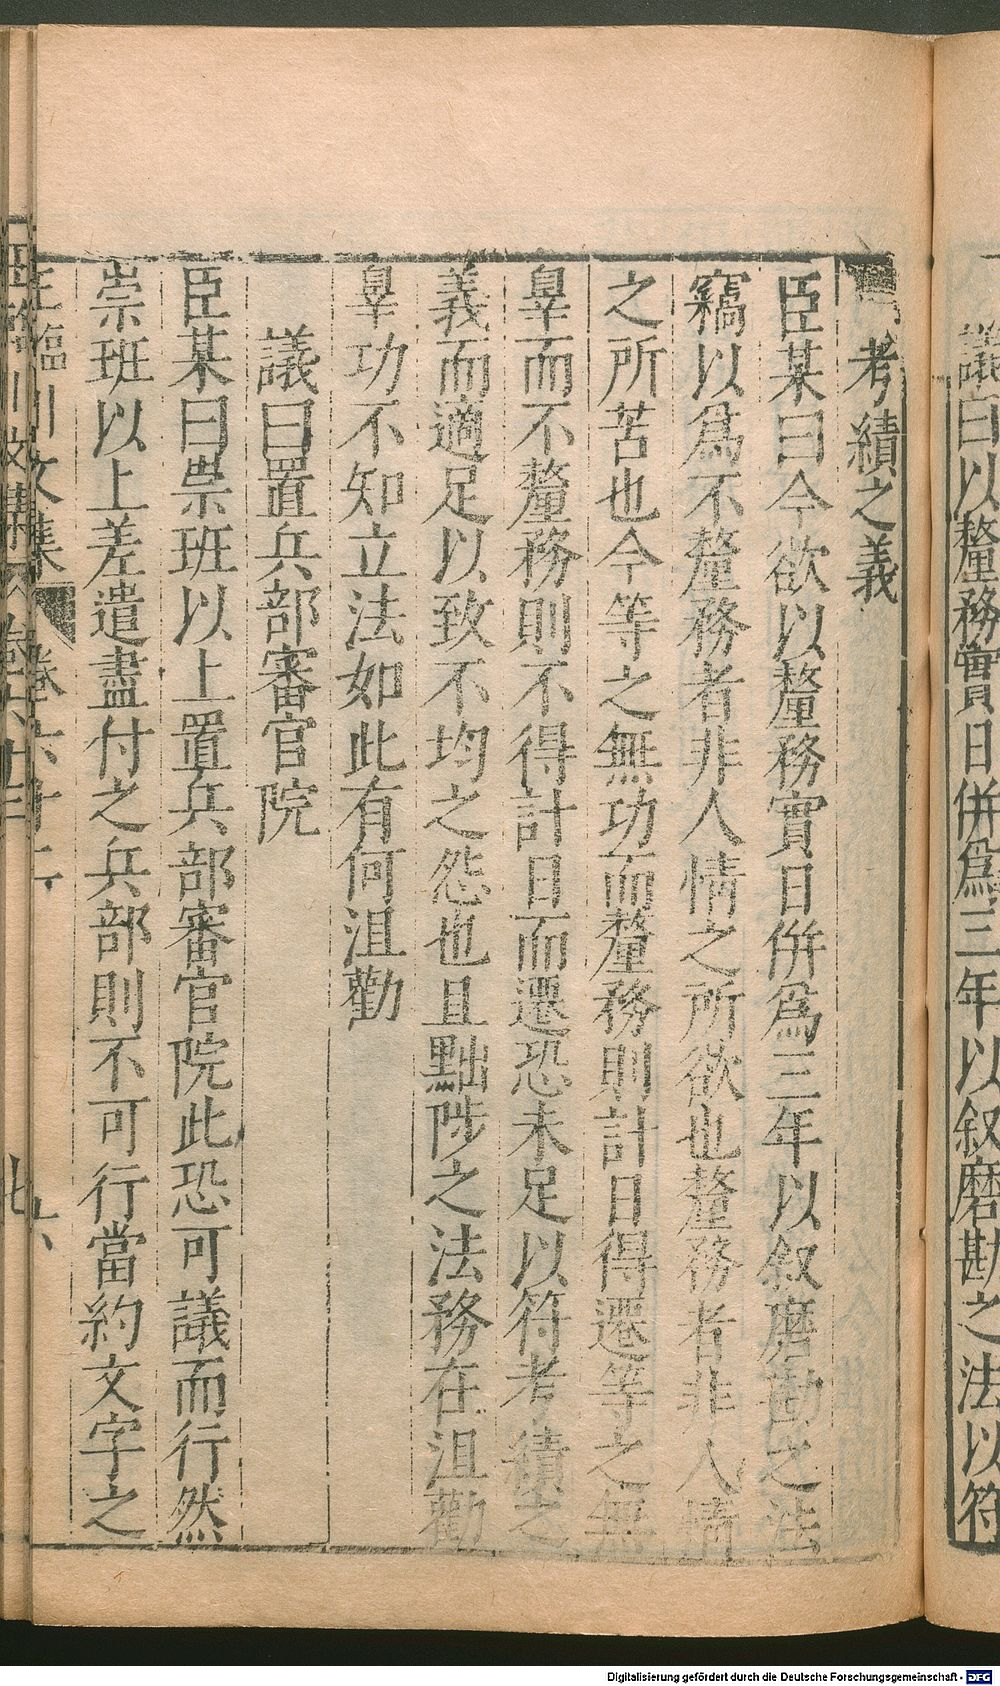 議曰以釐務實日併爲三年以叙磨勘之法以符
考績之義
臣某曰今欲以釐務實日併爲三年以叙磨勘之法
竊以爲不釐務者非人情之所欲也釐務者非人情
之所苦也今等之無功而釐務則計日得遷等之無
辠而不釐務則不得計日而遷恐未足以符考績之
義而適足以致不均之怨也且黜陟之法務在沮勸
辠功不知立法如此有何沮勸
議曰置兵部審官院
臣某曰崇班以上置兵部審官院此恐可議而行然
崇班以上差遣盡付之兵部則不可行當約文字之
王臨川文集 卷六十二 六
Digitalisierung gefördert durch die Deutsche Forschungsgemeinschaft - DFG